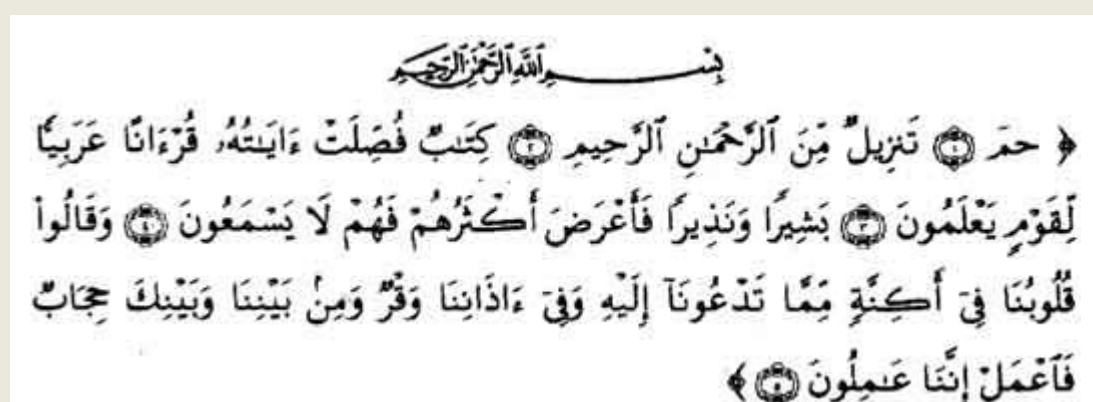 بِسْمِ ٱللَّهِ ٱلرَّحْمَٰنِ ٱلرَّحِيمِ
﴿ حمٓ ۝١ تَنزِيلٌ مِّنَ ٱلرَّحْمَٰنِ ٱلرَّحِيمِ ۝٢ كِتَٰبٌ فُصِّلَتْ ءَايَٰتُهُۥ قُرْءَانًا عَرَبِيًّا
لِّقَوْمٍ يَعْلَمُونَ ۝٣ بَشِيرًا وَنَذِيرًا فَأَعْرَضَ أَكْثَرُهُمْ فَهُمْ لَا يَسْمَعُونَ ۝٤ وَقَالُوا۟
قُلُوبُنَا فِىٓ أَكِنَّةٍ مِّمَّا تَدْعُونَآ إِلَيْهِ وَفِىٓ ءَاذَانِنَا وَقْرٌ وَمِنۢ بَيْنِنَا وَبَيْنِكَ حِجَابٌ
فَٱعْمَلْ إِنَّنَا عَٰمِلُونَ ۝٥ ﴾